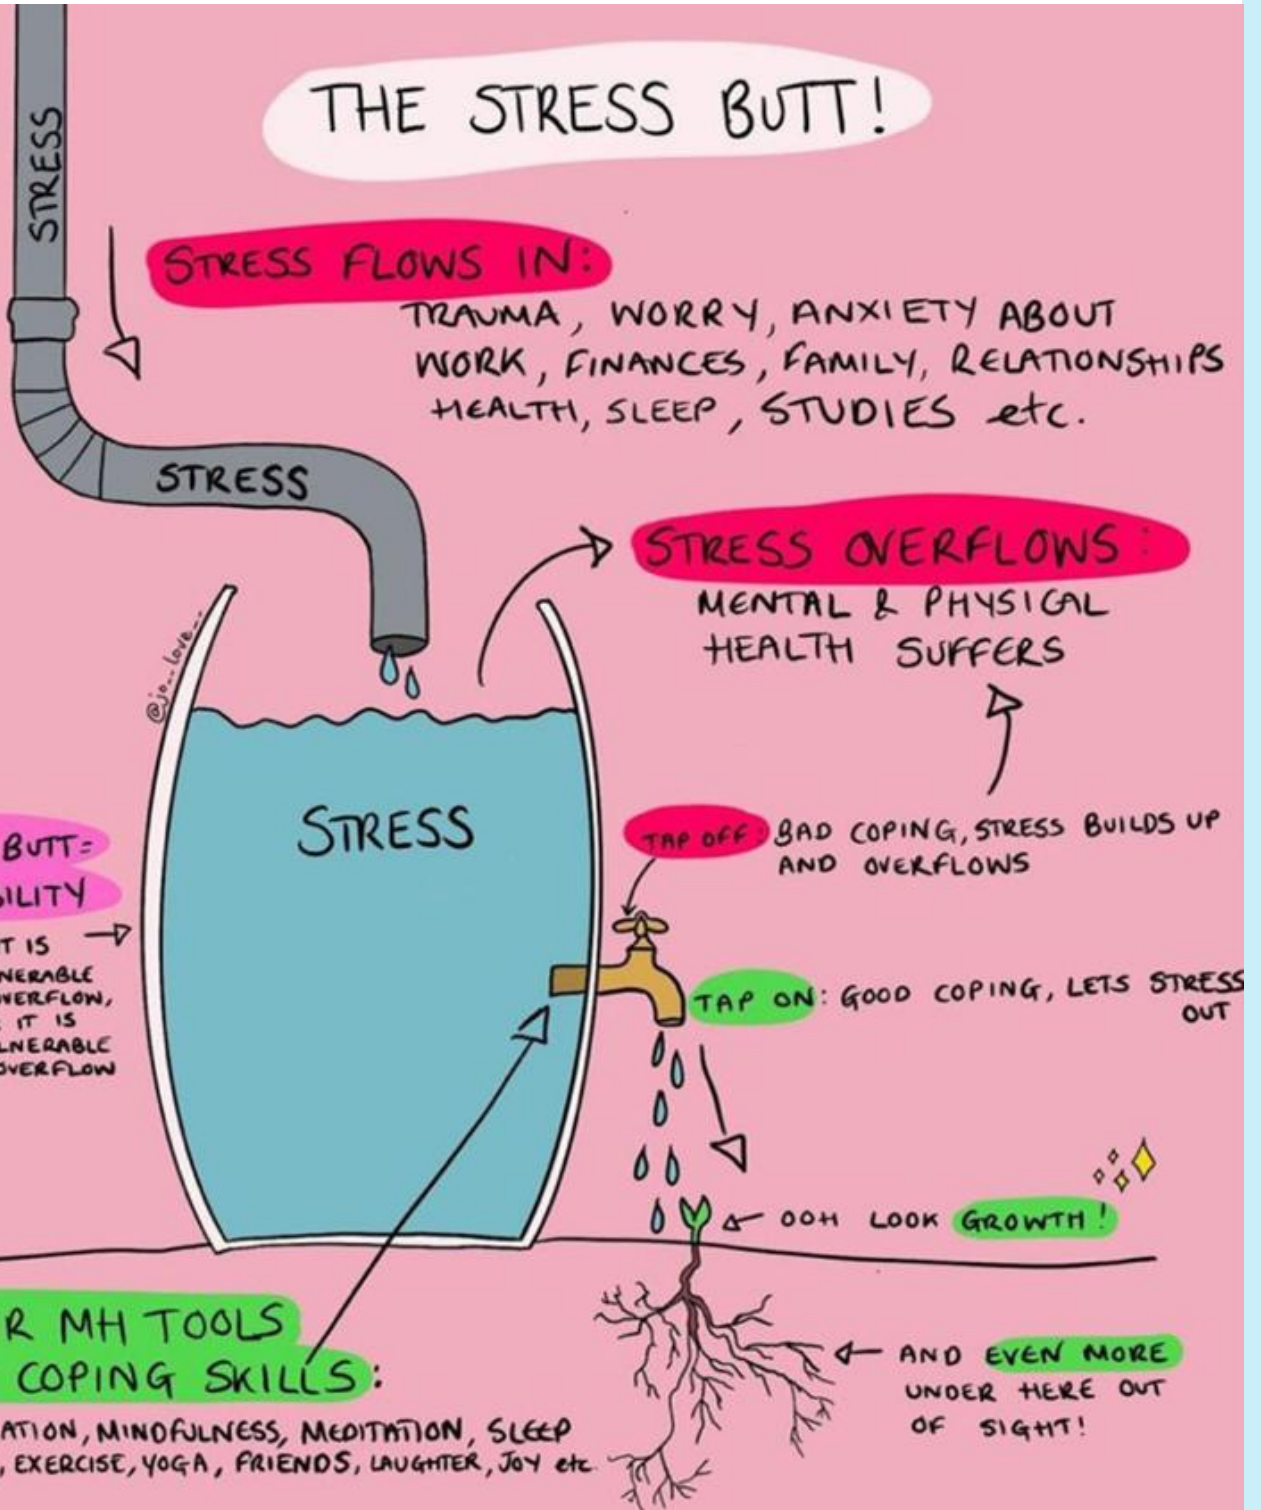 THE STRESS BUTT!
STRESS
STRESS FLOWS IN:
TRAUMA, WORRY, ANXIETY ABOUT
WORK, FINANCES, FAMILY, RELATIONSHIPS
HEALTH, SLEEP, STUDIES etc.
STRESS
STRESS OVERFLOWS:
MENTAL & PHYSICAL
HEALTH SUFFERS
@jo...love...
STRESS
TAP OFF: BAD COPING, STRESS BUILDS UP
AND OVERFLOWS
BUTT=
ILITY
T IS
NERABLE
VERFLOW,
IT IS
LNERABLE
OVERFLOW
TAP ON: GOOD COPING, LETS STRESS
OUT
OOH LOOK GROWTH!
AND EVEN MORE
UNDER HERE OUT
OF SIGHT!
R MH TOOLS
COPING SKILLS:
ATION, MINDFULNESS, MEDITATION, SLEEP
, EXERCISE, YOGA, FRIENDS, LAUGHTER, JOY etc.